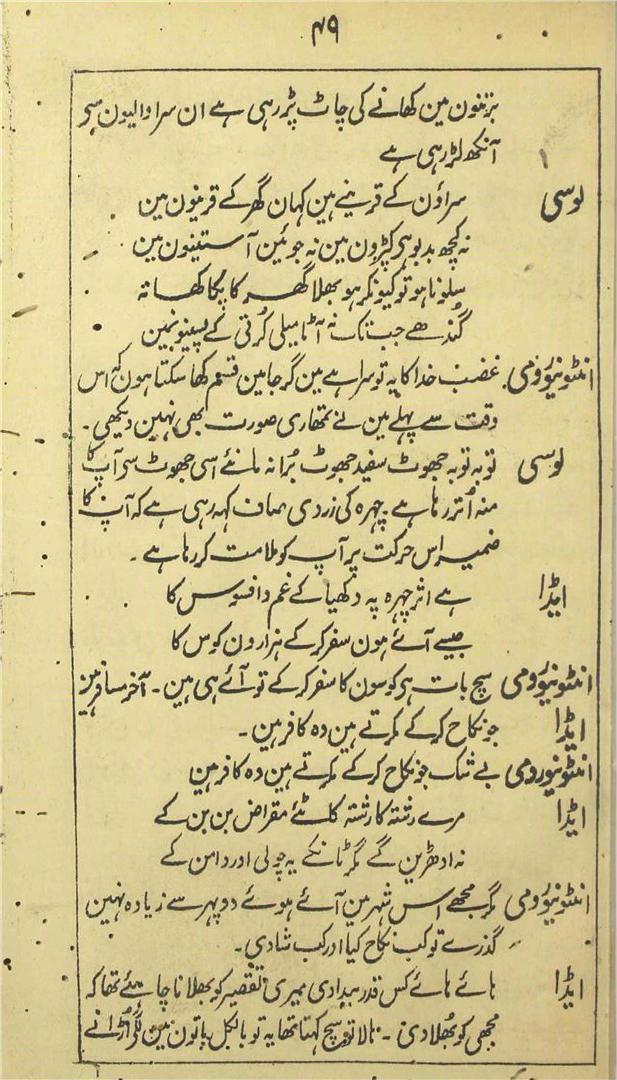 ۴۹
برتنون مین کھانے کی چاٹ پڑ رہی ہے ان سرا والیون سے
آنکھ لڑ رہی ہے
لوسی سراؤن کے قرینے ہین کہان گھر کے قرینون مین
نہ کچھ بدبو ہی کپڑون مین نہ جوئین آستینون مین
سلونا ہو تو کیونکر ہو بھلا گھر کا پکا کھانہ
گندھے جب تک نہ آٹا میلی کرتی کے پسینونمین
انٹونیورومی۔ غضب خدا کا یہ تو سرا ہے مین گرجا مین قسم کھا سکتا ہون کہ اس
وقت سے پہلے مین نے تمھاری صورت بھی نہین دیکھی۔
لوسی توبہ توبہ جھوٹ سفید جھوٹ بُرا نہ مانئے اسی جھوٹ سے آپ کا
منہ اُتر رہا ہے چہرہ کی زردی صاف کہہ رہی ہے کہ آپ کا
ضمیر اس حرکت پر آپ کو ملامت کر رہا ہے۔
ایڈا ہے اثر چہرہ پہ دکھیا کے غم و افسوس کا
جیسے آئے ہون سفر کر کے ہزارون کوس کا
انٹونیورومی سچ بات ہی کوسون کا سفر کر کے تو آئے ہی ہین۔ آخر مسافر ہین
ایڈا جو نکاح کر کے مکرتے ہین وہ کافر ہین۔
انٹونیورومی بے شک جو نکاح کر کے مکرتے ہین وہ کافر ہین
ایڈا مرے رشتہ کا رشتہ کاٹئے مقراض بن بن کے
نہ ادھڑین گے مگر ٹانکے یہ چولی اور دامن کے
انٹونیورومی مگر مجھے اس شہر مین آئے ہوئے دو پہر سے زیادہ نہین
گذرے تو کب نکاح کیا اور کب شادی۔
ایڈا ہائے ہائے کس قدر بیدادی میری تقصیر کو بھلانا چاہئے تھا کہ
مجھی کو بھلا دی۔ تو سچ کہتا تھا یہ تو بالکل باتون مین اُڑانے